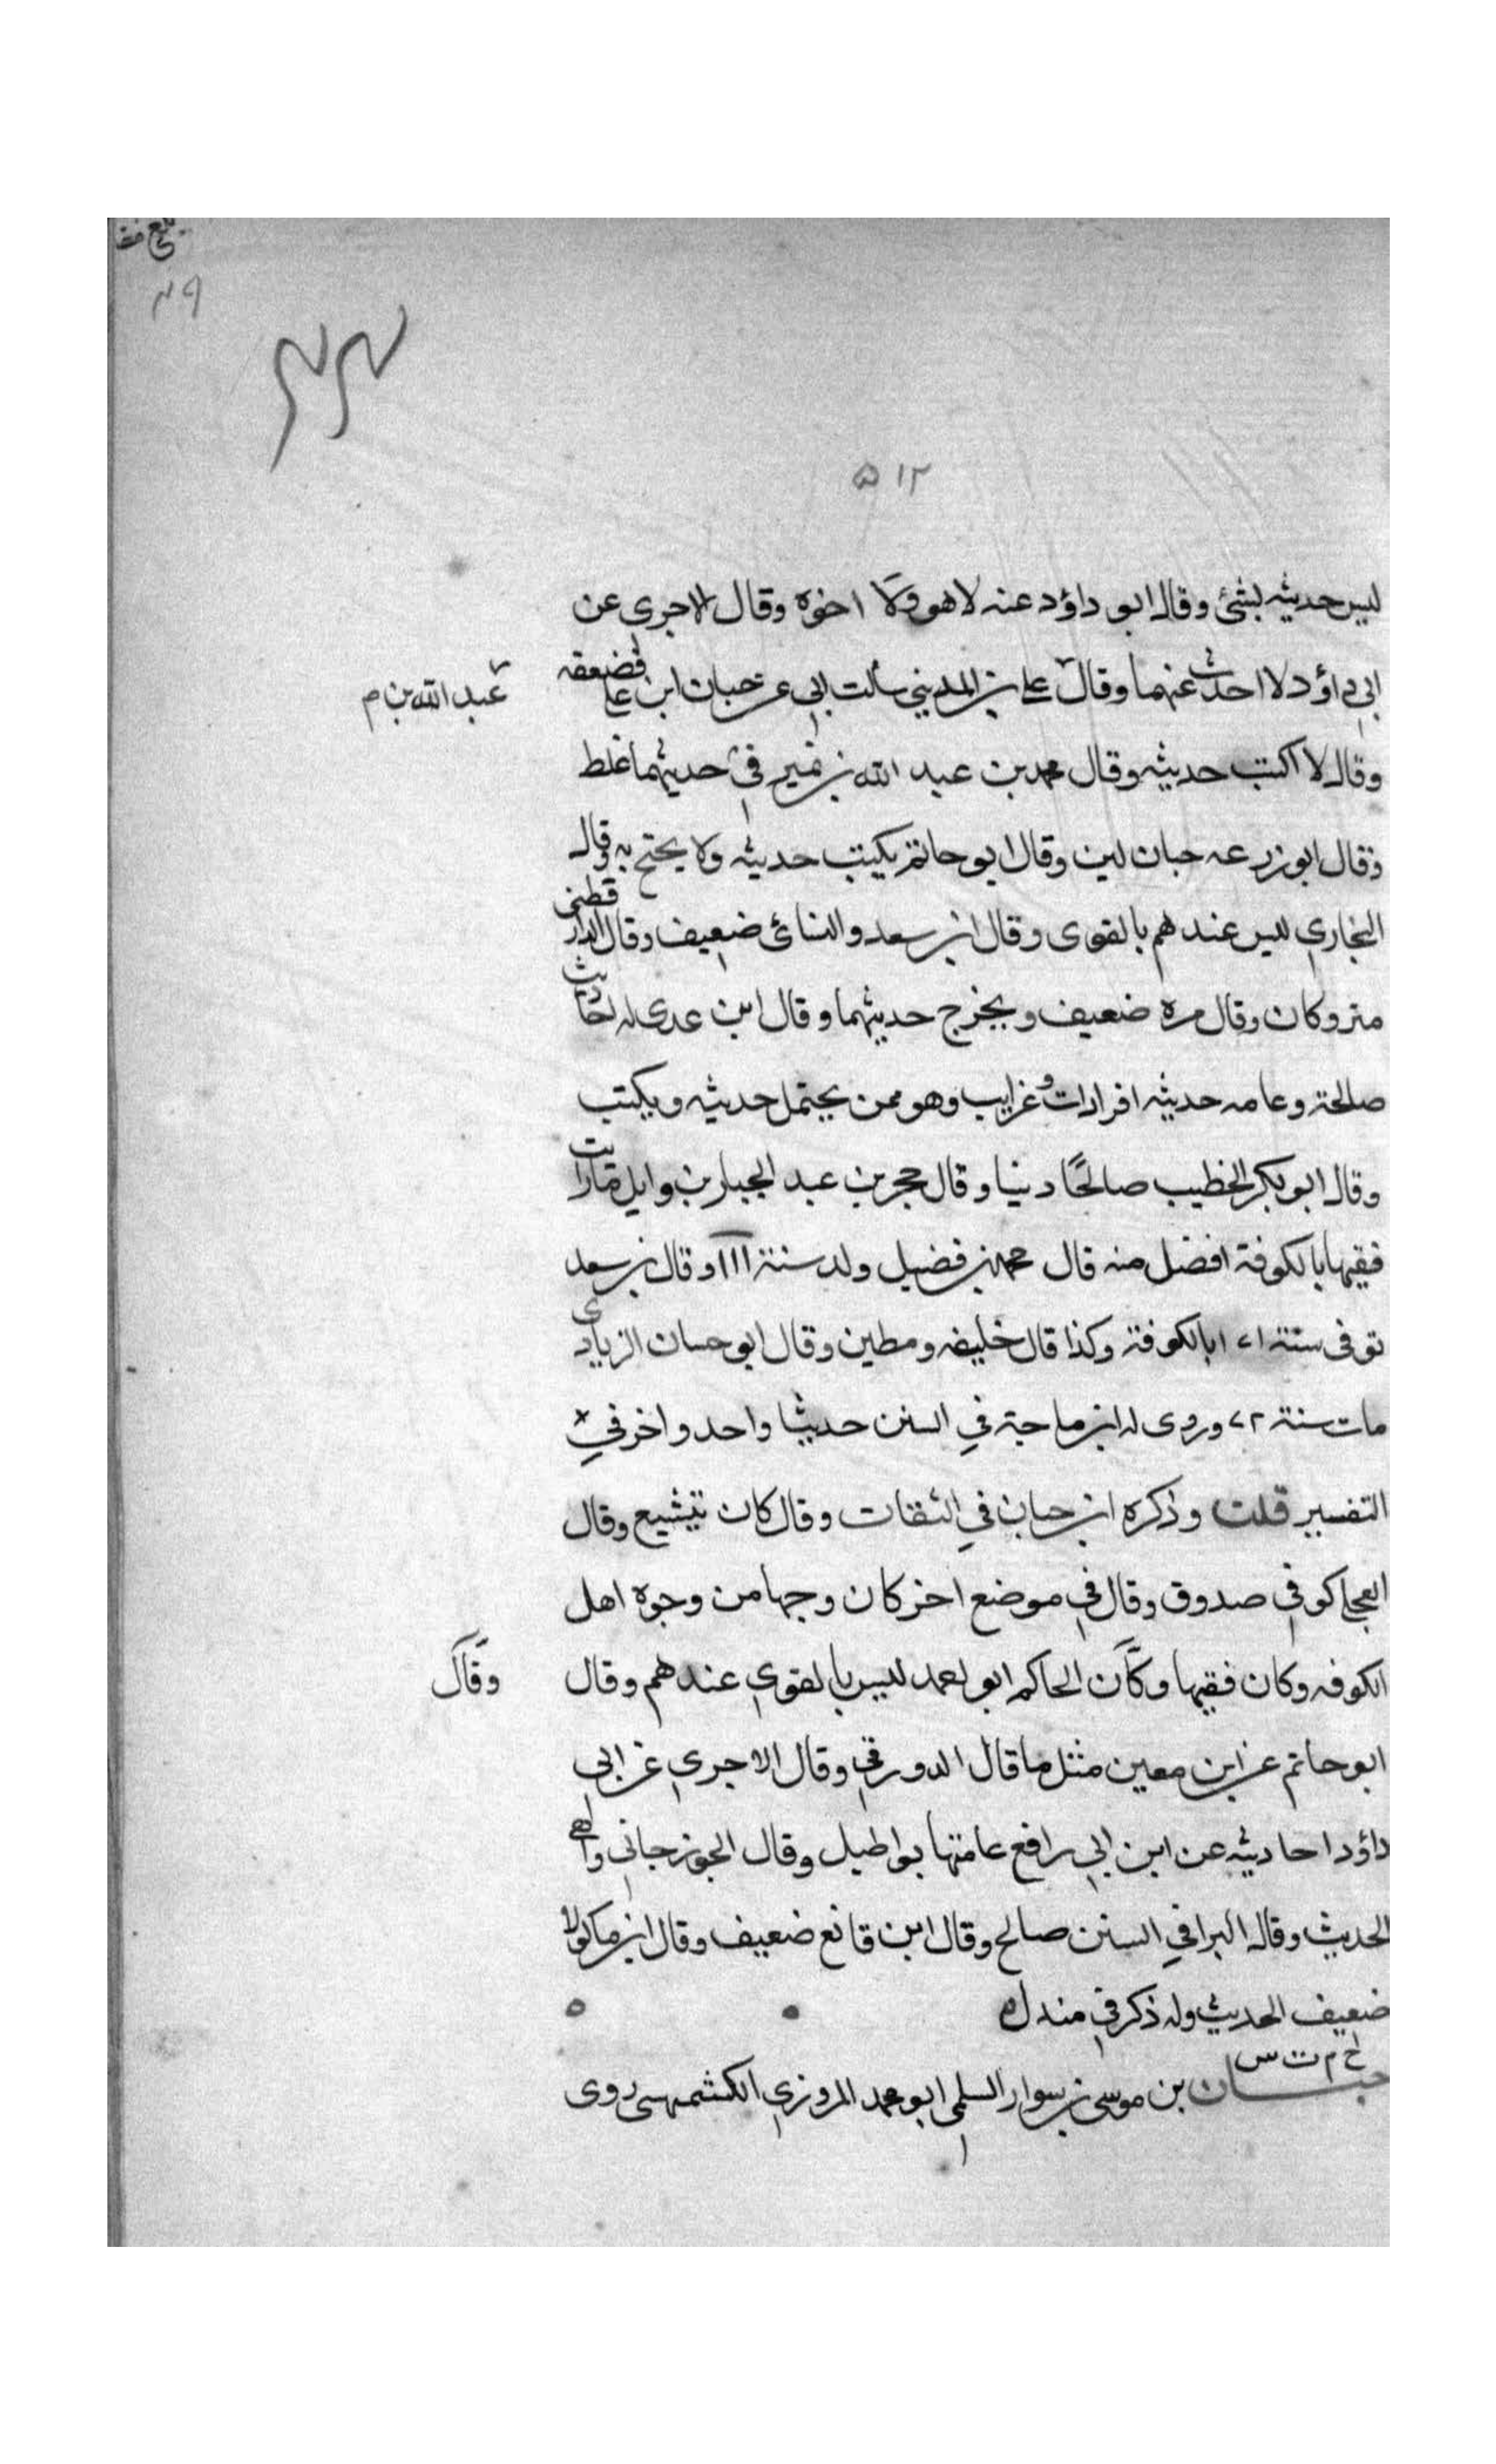 ٤٩
٤٤
٥١٢
ليس حديثه بشئ وقال ابو داؤد عنه لا هو ولا اخوه وقال الاجرى عن
ابي داؤد لا احدث عنهما وقال علي بن المديني سألت ابي عن حبان ابن علي فضعفه
عبد الله بن م
وقال لا اكتب حديثه وقال محمد بن عبد الله بن نمير في حديثهما غلط
وقال ابو زرعه حبان لين وقال ابو حاتم يكتب حديثه ولا يحتج به وقال
البخاري ليس عندهم بالقوى وقال ابن سعد والنسائ ضعيف وقال الدارقطنى
متروكان وقال مره ضعيف ويخرج حديثهما وقال ابن عدى له احاديث
صالحة وعامه حديثه افرادات وغرايب وهو ممن يحتمل حديثه ويكتب
وقال ابو بكر الخطيب صالحًا دينا وقال حجر بن عبد الجبار بن وايل ما رايت
فقيها بالكوفة افضل منه قال محمد بن فضيل ولد سنة ١١١ وقال بن سعد
توفى سنة ١٧١ بالكوفة وكذا قال خليفه ومطين وقال ابو حسان الزيادى
مات سنة ٧٢ وروى له ابن ماجة في السنن حديثا واحد واخر في
التفسير قلت وذكره ابن حبان في الثقات وقال كان يتشيع وقال
العجلي كوفي صدوق وقال في موضع اخر كان وجها من وجوه اهل
الكوفه وكان فقيها وكان الحاكم ابو احمد ليس بالقوي عندهم وقال
وقال
ابو حاتم عن ابن معين مثل ما قال الدورقي وقال الاجري عن ابي
داؤد احاديثه عن ابن ابي رافع عامتها بواطيل وقال الجوزجاني واهي
الحديث وقال البزا في السنن صالح وقال ابن قانع ضعيف وقال ابن ماكولا
ضعيف الحديث وله ذكر في مندل ه
خ م ت س
حبان بن موسى بن سوار السلمي ابو محمد المروزي الكشميهنى روى